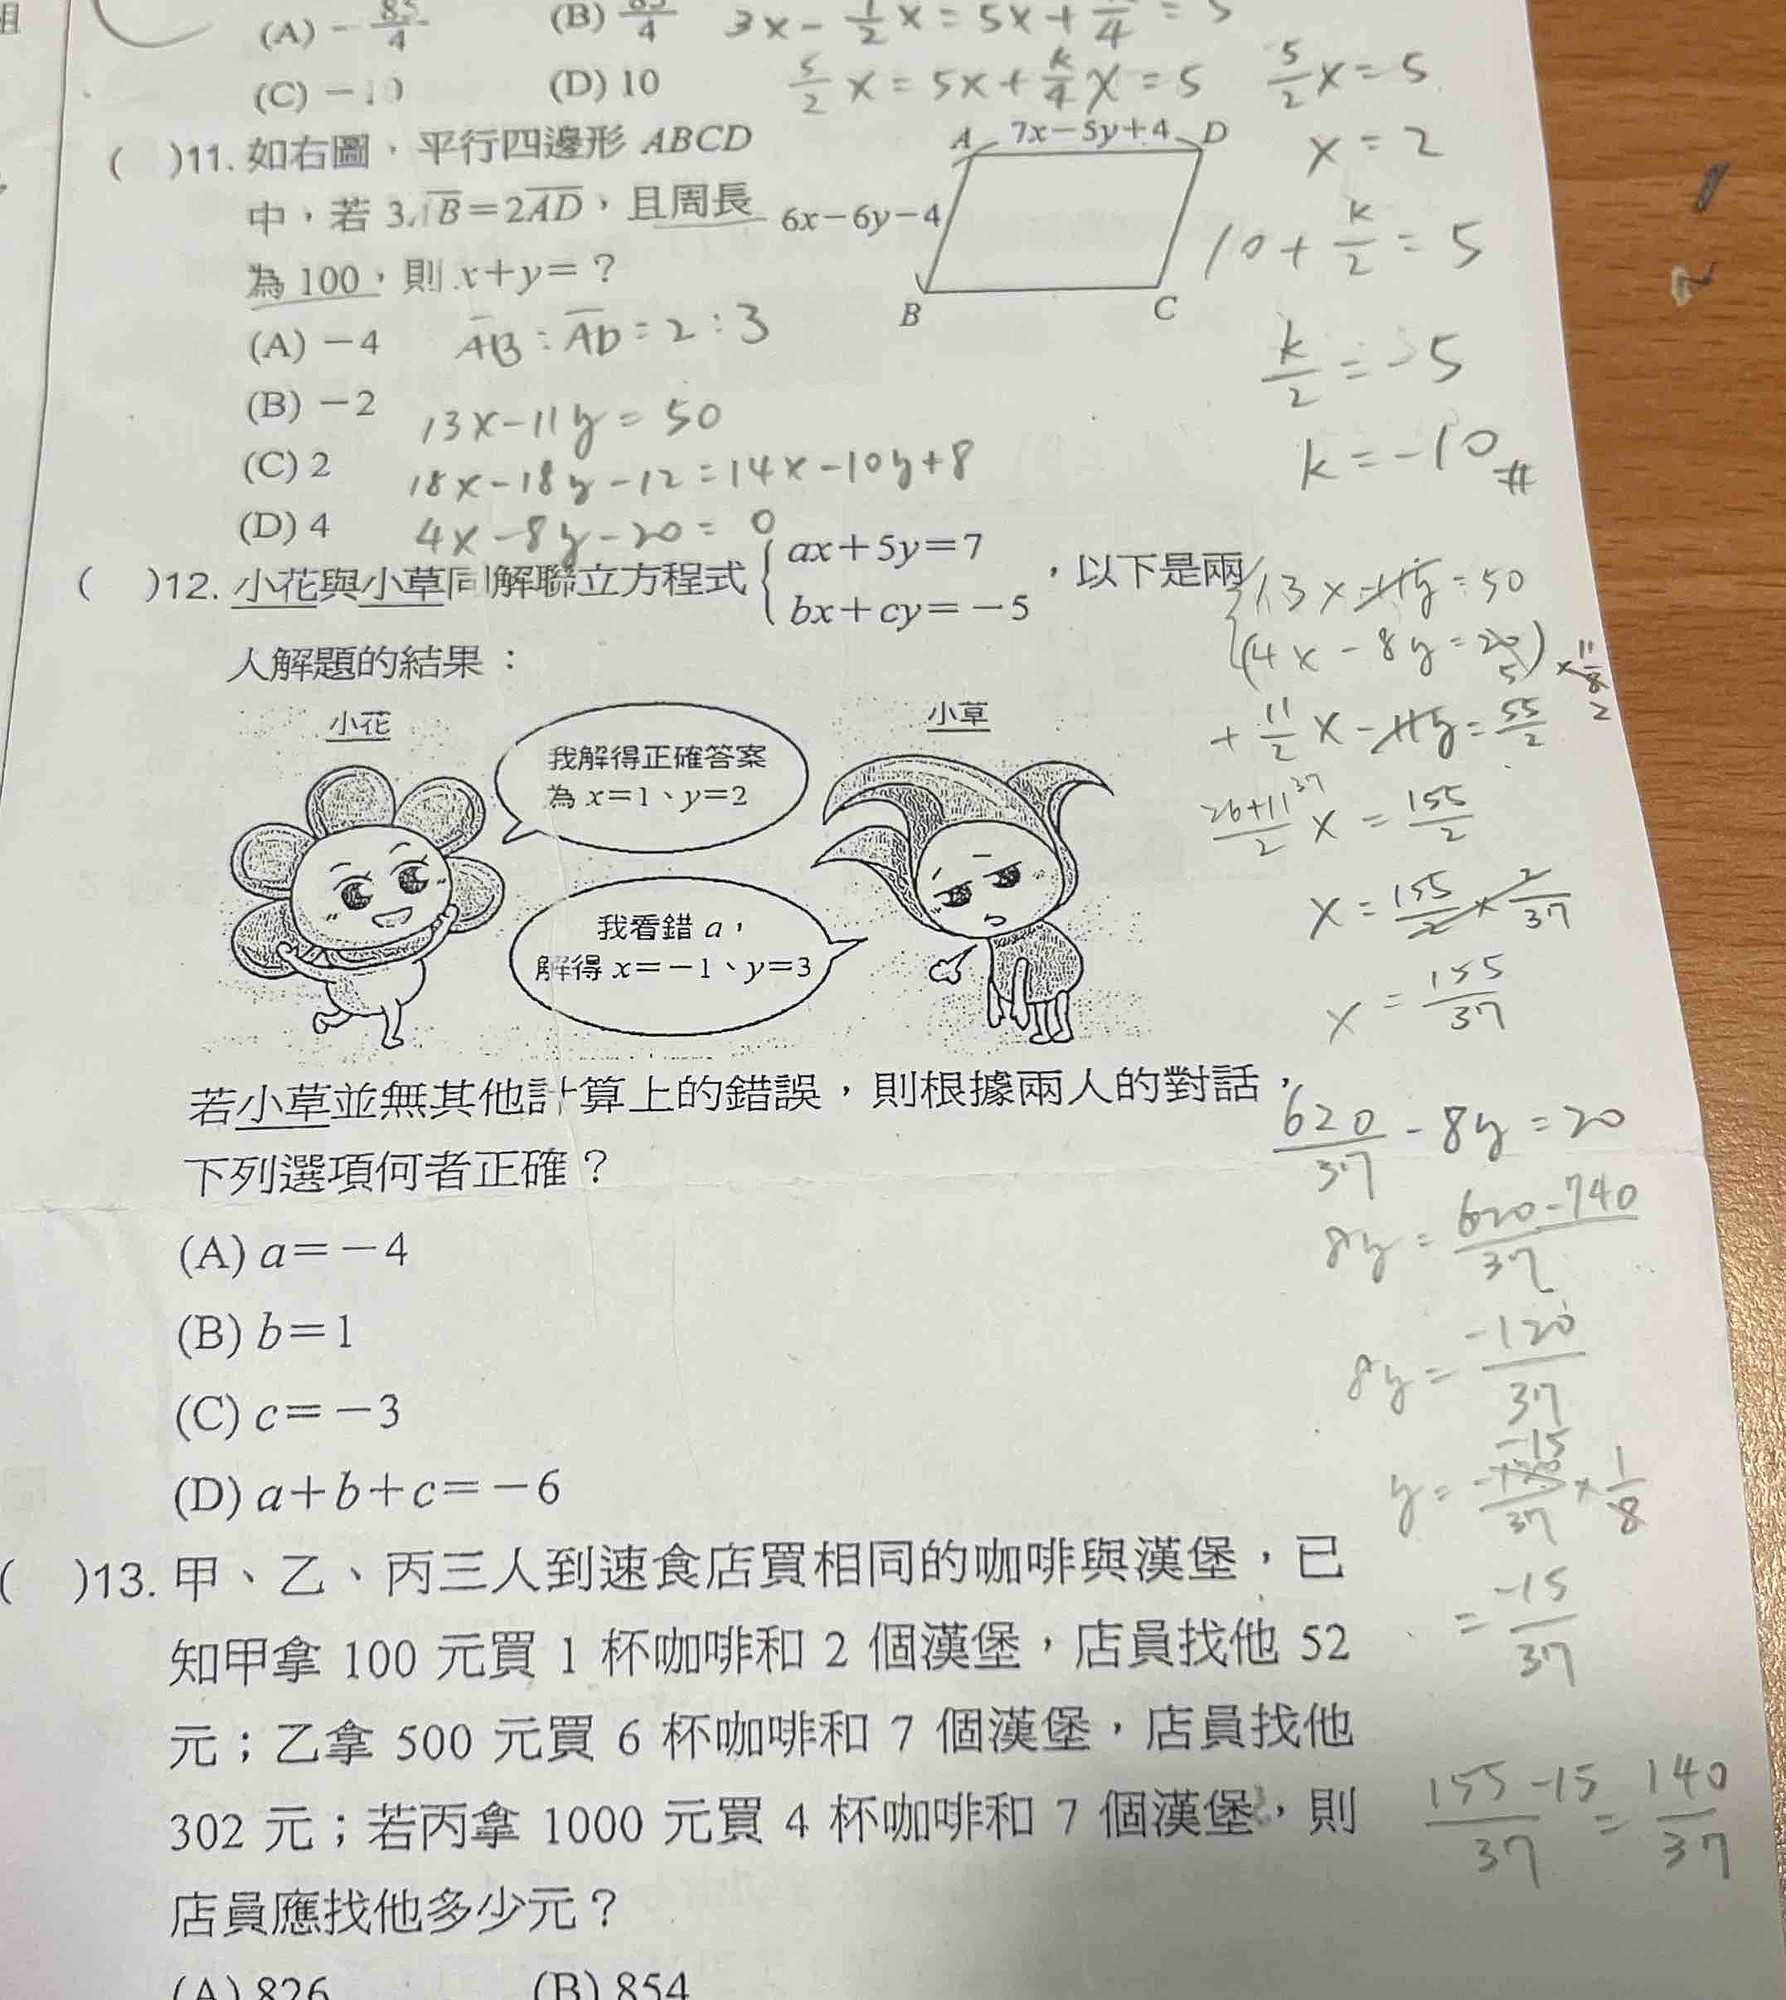 (A) − 85/4 (B) 85/4 3x − 1/2 x = 5x + k/4 = 5
(C) −10 (D) 10 5/2 x = 5x + k/4 x = 5 5/2 x = 5
x = 2
10 + k/2 = 5
k/2 = −5
k = −10 #
( )11. 如右圖，平行四邊形 ABCD
中，若 3AB=2AD，且周長
為 100，則 x+y=？
A 7x−5y+4 D
6x−6y−4
B C
(A) −4 AB : AD = 2 : 3
(B) −2 13x−11y = 50
(C) 2 18x−18y−12=14x−10y+8
(D) 4 4x−8y−20 = 0
( )12. 小花與小草同解聯立方程式 { ax+5y=7
bx+cy=−5 ，以下是兩
人解題的結果：
小花
我解得正確答案
為 x=1、y=2
小草
我看錯 a，
解得 x=−1、y=3
若小草並無其他計算上的錯誤，則根據兩人的對話，
下列選項何者正確？
(A) a=−4
(B) b=1
(C) c=−3
(D) a+b+c=−6
{ 13x−11y=50
(4x−8y=20) ×11/8
+ 11/2 x − 11y = 55/2
26+11/2 x = 155/2
x = 155/2 × 2/37
x = 155/37
620/37 − 8y = 20
8y = 620−740/37
8y = −120/37
y = −120/37 × 1/8
= −15/37
155−15/37 = 140/37
( )13. 甲、乙、丙三人到速食店買相同的咖啡與漢堡，已
知甲拿 100 元買 1 杯咖啡和 2 個漢堡，店員找他 52
元；乙拿 500 元買 6 杯咖啡和 7 個漢堡，店員找他
302 元；若丙拿 1000 元買 4 杯咖啡和 7 個漢堡，則
店員應找他多少元？
(A) 826 (B) 854